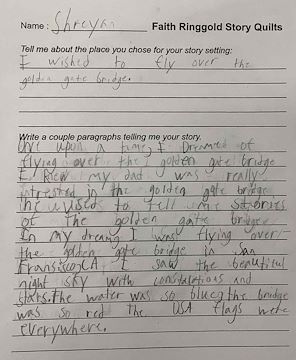 Name: Shreyan Faith Ringgold Story Quilts
Tell me about the place you chose for your story setting:
I wished to fly over the
golden gate bridge.
Write a couple paragraphs telling me your story.
One upon a time, I Dreamed of
flying over the golden gate bridge
I my dad was really
intrested in the golden gate bridge
he used to tell me stories
of the golden gate bridge
In my dream, I was flying over
the golden gate bridge in San
Fransisco,CA I saw the beautiful
night sky with constulations and
stars. the water was so blue, the bridge
was so red the USA flags were
everywhere.